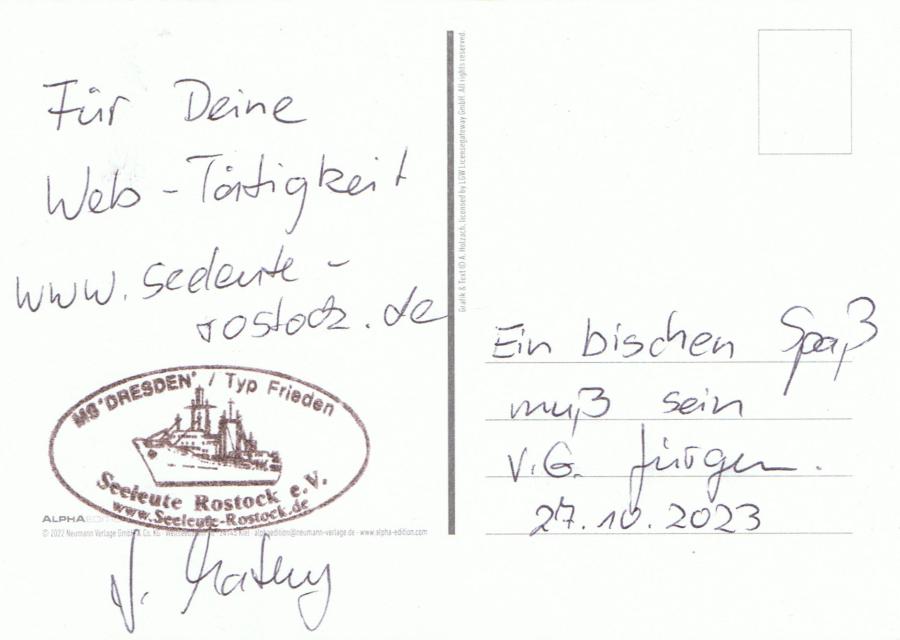 Für Deine
Web-Tätigkeit
www.seeleute-
rostock.de
MS "DRESDEN" / Typ Frieden
Seeleute Rostock e.V.
www.Seeleute-Rostock.de
ALPHA EDITION
© 2022 Neumann Verlage GmbH & Co. KG · 24145 Kiel · alphaedition@neumann-verlage.de · www.alpha-edition.com
J.
Grafik & Text © A. Holzach, licensed by LGW Licensegateway GmbH. All rights reserved.
Ein bischen Spaß
muß sein
V.G. Jürgen.
27.10.2023